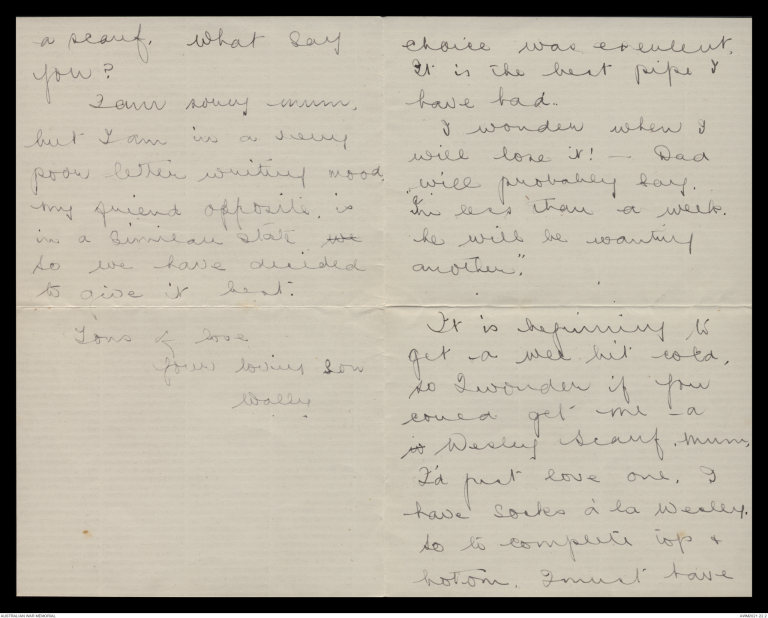 choice was excellent.
It is the best pipe I
have had..
I wonder when I
will lose it! — Dad
will probably say.
"In less than a week.
he will be wanting
another".
It is beginning to
get a wee bit cold,
so I wonder if you
could get me a
is Wesley Scarf. Mum,
I'd just love one. I
have Socks à la Wesley.
so to complete top &
bottom. I must have
a scarf. What say
you?
I am sorry mum,
but I am in a very
poor letter writing mood.
my friend opposite, is
in a similar state we
so we have decided
to give it best.
Tons of love
Your loving Son
Wally
AUSTRALIAN WAR MEMORIAL